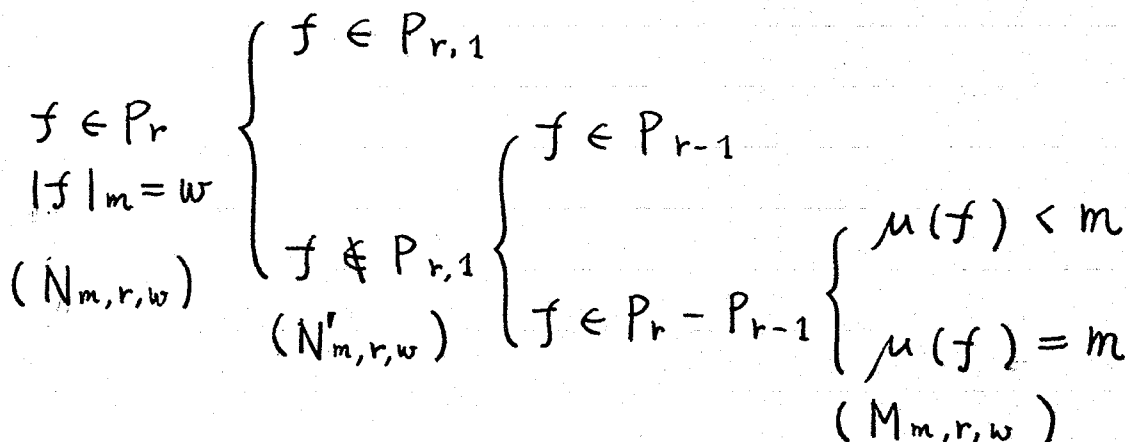 f ∈ P_{r,1}
f ∈ P_r
|f|_m = w
(N_{m,r,w})
f ∉ P_{r,1}
(N'_{m,r,w})
f ∈ P_{r-1}
f ∈ P_r - P_{r-1}
μ(f) < m
μ(f) = m
(M_{m,r,w})